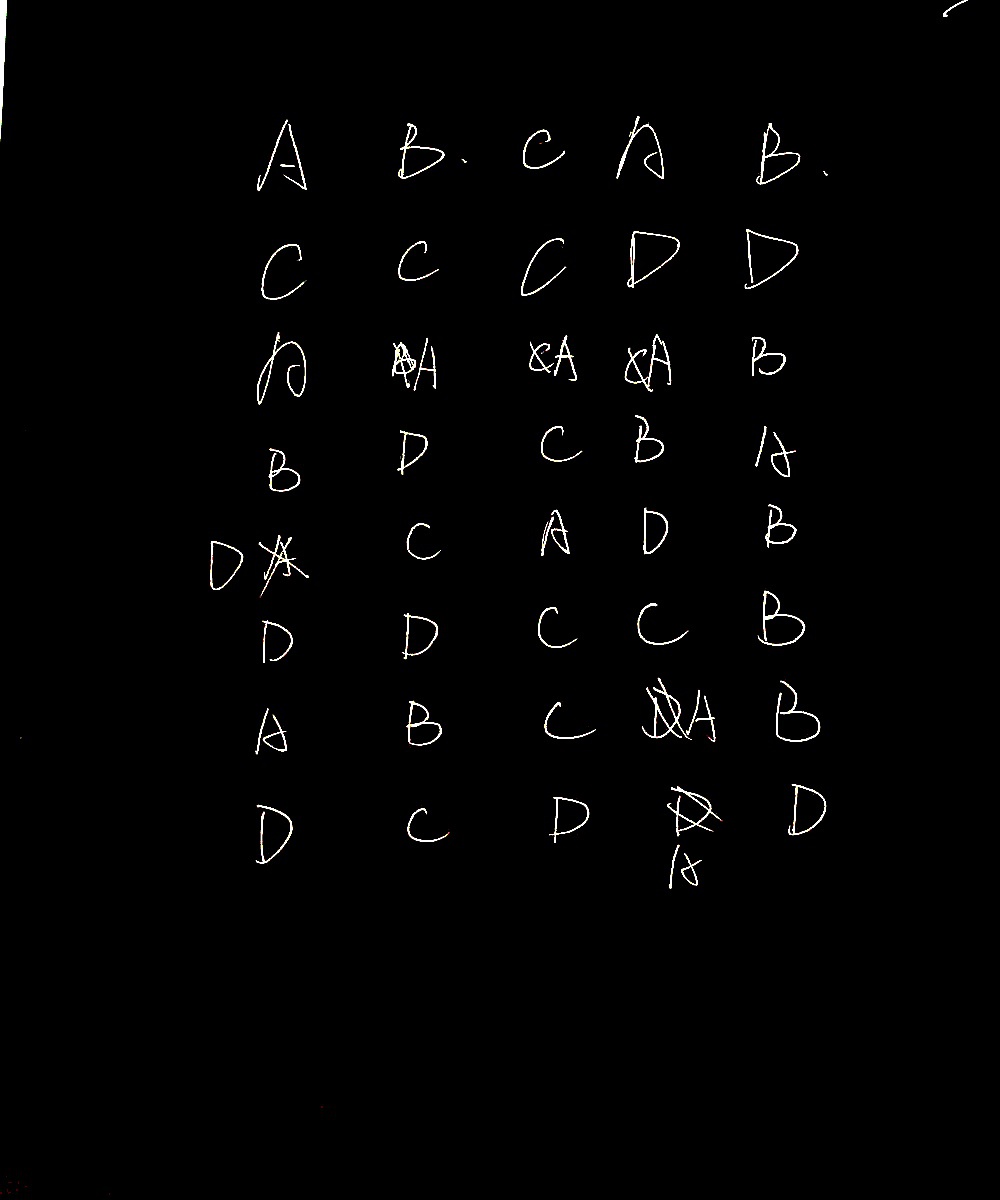 A B. C A B.
C C C D D
A A A A B
B D C B A
D C A D B
D D C C B
A B C A B
D C D A D